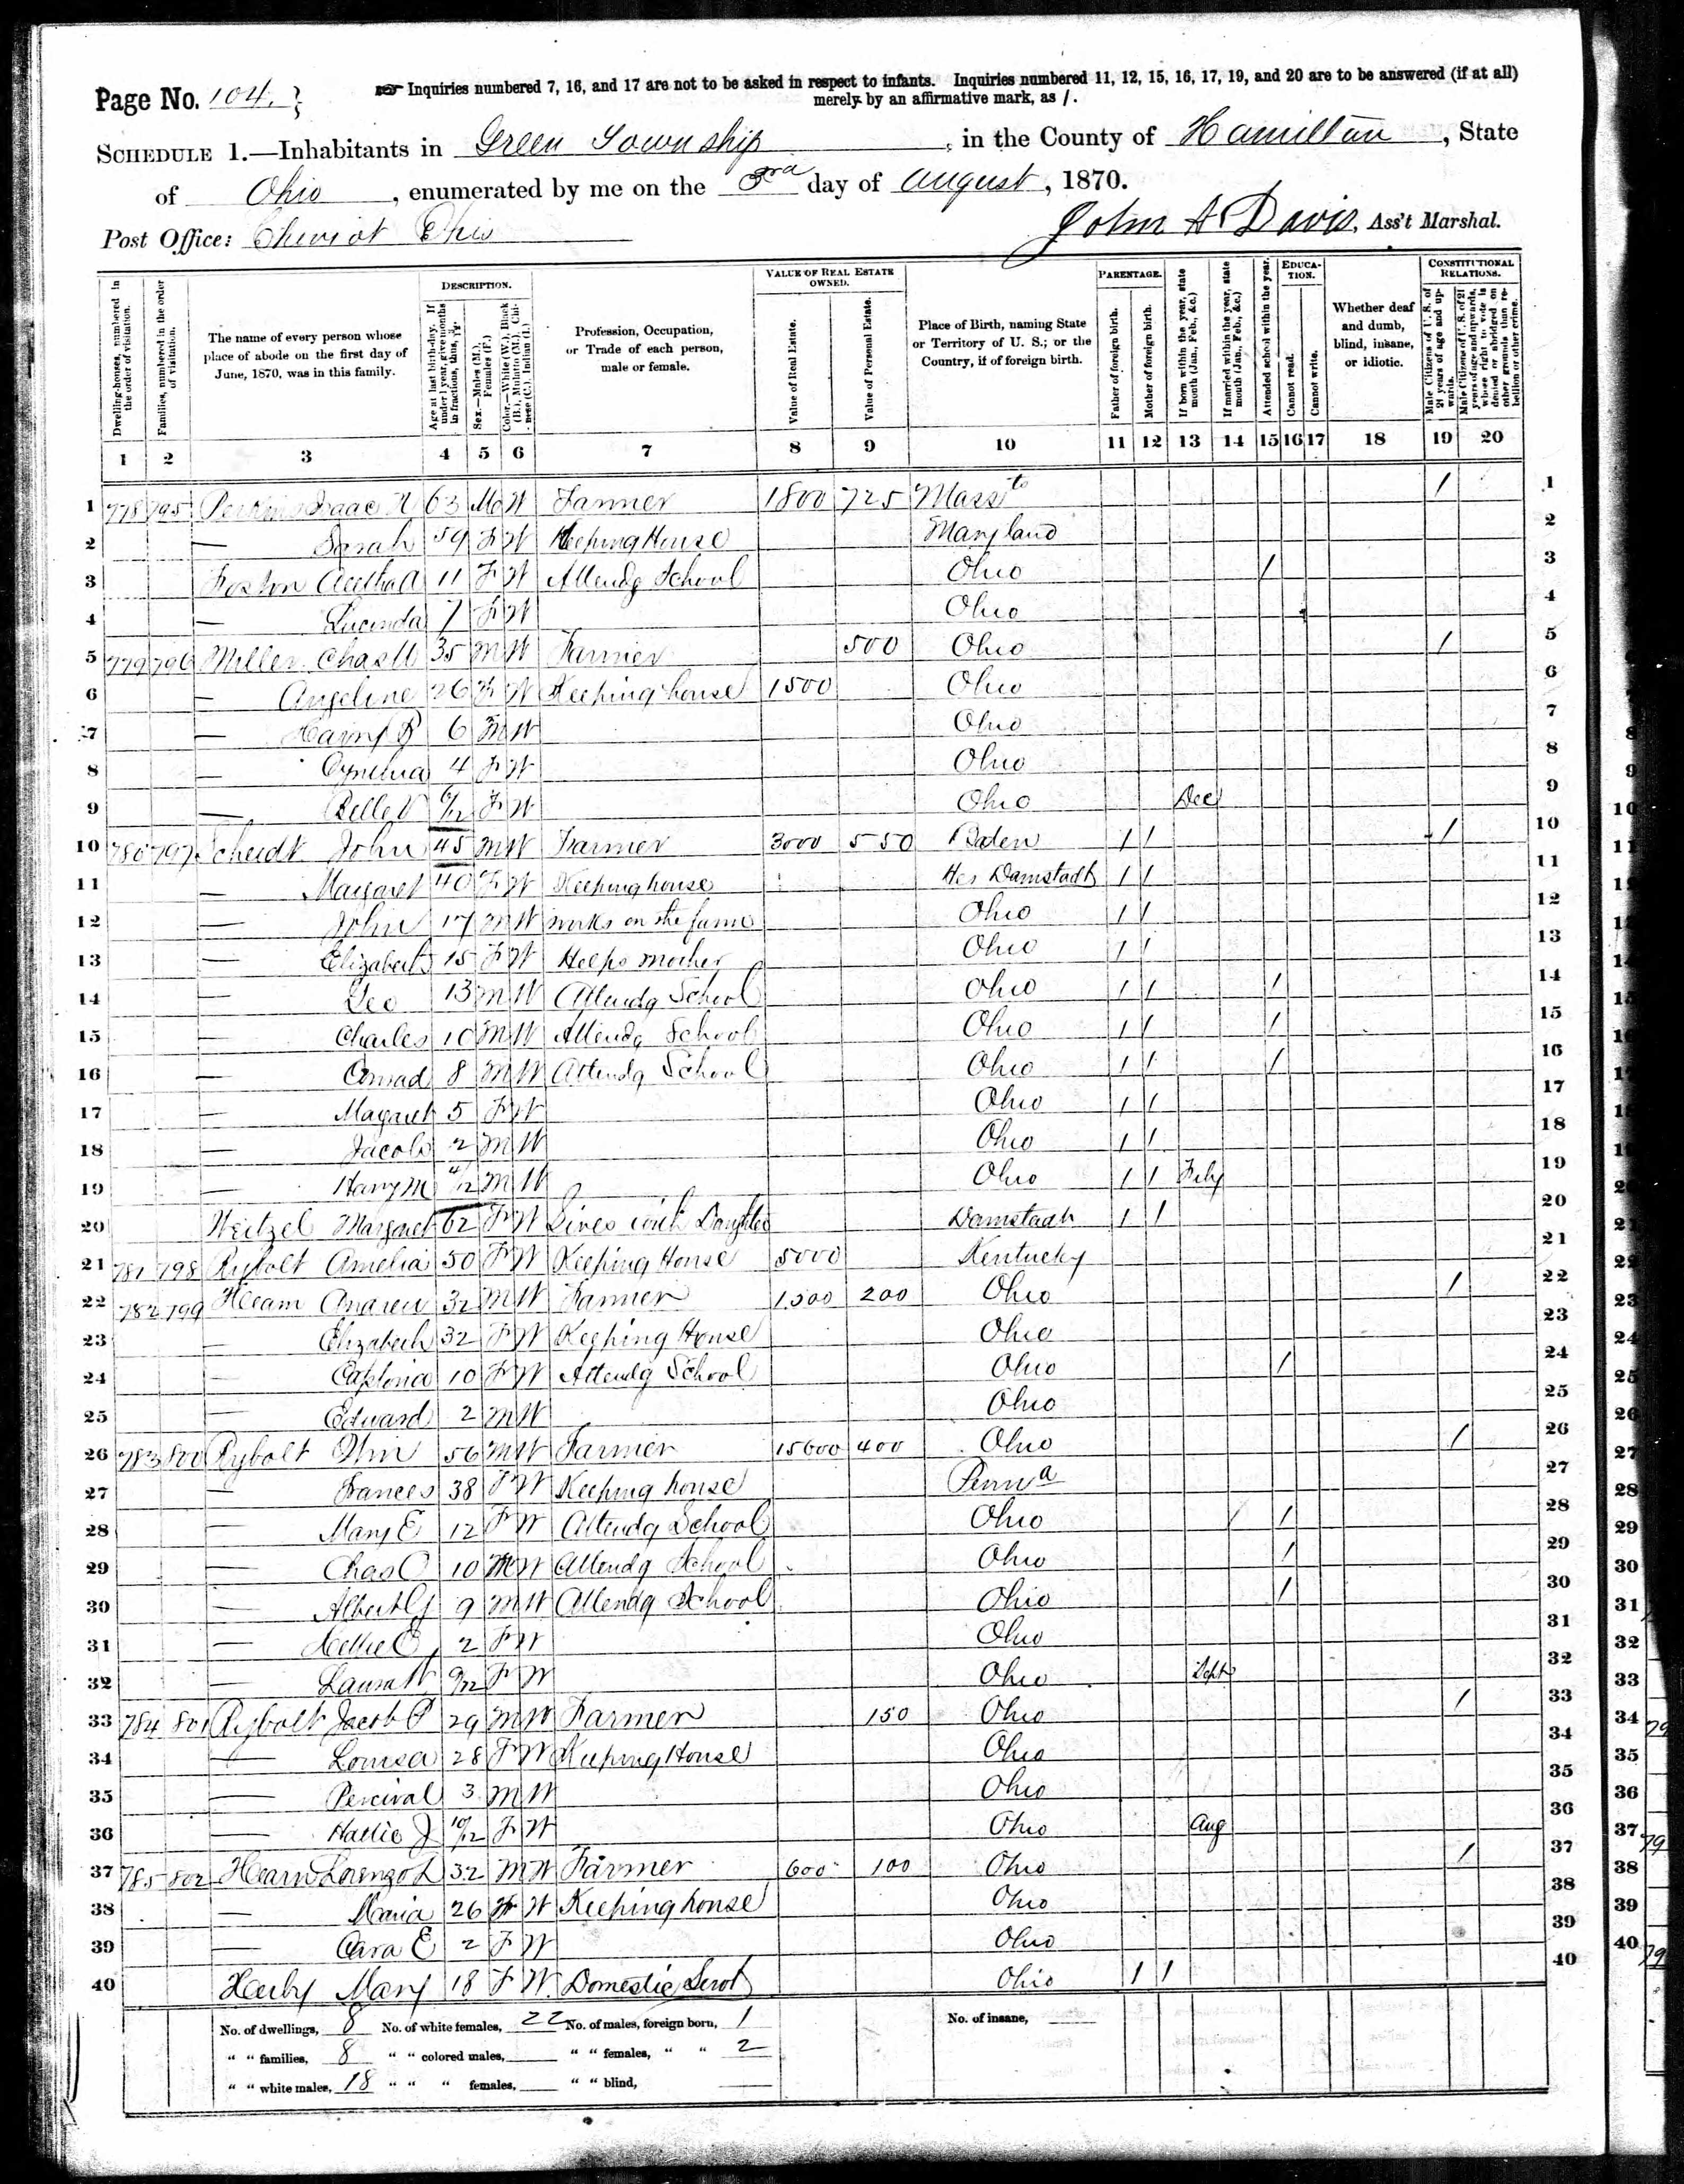 Page No. 104.
Inquiries numbered 7, 16, and 17 are not to be asked in respect to infants. Inquiries numbered 11, 12, 15, 16, 17, 19, and 20 are to be answered (if at all)
merely by an affirmative mark, as /.
SCHEDULE 1.—Inhabitants in Green Township, in the County of Hamilton, State
of Ohio, enumerated by me on the 3rd day of August, 1870.
Post Office: Cheviot Ohio
John A Davis, Ass't Marshal.
Dwelling-houses, numbered in the order of visitation.
Families, numbered in the order of visitation.
The name of every person whose place of abode on the first day of June, 1870, was in this family.
DESCRIPTION.
Age at last birth-day. If under 1 year, give months in fractions, thus, 3/12.
Sex.—Males (M.), Females (F.)
Color.—White (W.), Black (B.), Mulatto (M.), Chinese (C.), Indian (I.)
Profession, Occupation, or Trade of each person, male or female.
VALUE OF REAL ESTATE OWNED.
Value of Real Estate.
Value of Personal Estate.
Place of Birth, naming State or Territory of U. S.; or the Country, if of foreign birth.
PARENTAGE.
Father of foreign birth.
Mother of foreign birth.
If born within the year, state month (Jan., Feb., &c.)
If married within the year, state month (Jan., Feb., &c.)
Attended school within the year.
EDUCATION.
Cannot read.
Cannot write.
Whether deaf and dumb, blind, insane, or idiotic.
CONSTITUTIONAL RELATIONS.
Male Citizens of U. S. of 21 years of age and upwards.
Male Citizens of U. S. of 21 years of age and upwards, whose right to vote is denied or abridged on other grounds than rebellion or other crime.
1 2 3 4 5 6 7 8 9 10 11 12 13 14 15 16 17 18 19 20
1 778 795 Perkins Isaac 63 M W Farmer 1800 725 Mass / 1
2 — Sarah 59 F W Keeping House Maryland 2
3 11 F W Attendg School Ohio / 3
4 — Lucinda 7 F W Ohio 4
5 779 796 Miller Chas 35 M W Farmer 500 Ohio / 5
6 — Angeline 26 F W Keeping house 1500 Ohio 6
7 — 6 M W Ohio 7
8 — Cynthia 4 F W Ohio 8
9 — Belle V 6/12 F W Ohio Dec 9
10 780 797 Scheidt John 45 M W Farmer 3000 550 Baden / / / 10
11 — Margaret 40 F W Keeping house Hes Damstadt / / 11
12 — John 17 M W works on the farm Ohio / / 12
13 — Elizabeth 15 F W Helps mother Ohio / / 13
14 — Geo 13 M W Attendg School Ohio / / / 14
15 — Charles 10 M W Attendg School Ohio / / / 15
16 — Conrad 8 M W Attendg School Ohio / / / 16
17 — Magaret 5 F W Ohio / / 17
18 — Jacob 2 M W Ohio / / 18
19 — Harry M 4/12 M W Ohio / / Feby 19
20 Weitzel Margaret 62 F W Lives with Daughter Damstadt / / 20
21 781 798 Rybolt Amelia 50 F W Keeping House 5000 Kentucky 21
22 782 799 Hearn Andrew 32 M W Farmer 1500 200 Ohio / 22
23 — Elizabeth 32 F W Keeping House Ohio 23
24 — 10 F W Attendg School Ohio / 24
25 — Edward 2 M W Ohio 25
26 783 800 Rybolt 56 M W Farmer 15600 400 Ohio / 26
27 — Frances 38 F W Keeping house Penna 27
28 — Mary E 12 F W Attendg School Ohio / 28
29 — Chas O 10 M W Attendg School Ohio / 29
30 — Albert G 9 M W Attendg School Ohio / 30
31 — 2 F W Ohio 31
32 — Laura 9/12 F W Ohio Sept 32
33 784 801 Rybolt Jacob P 29 M W Farmer 150 Ohio / 33
34 — Louisa 28 F W Keeping House Ohio 34
35 — Percival 3 M W Ohio 35
36 — Hallie J 10/12 F W Ohio Aug 36
37 785 802 Hearn Lorenzo L 32 M W Farmer 600 100 Ohio / 37
38 — Maria 26 F W Keeping house Ohio 38
39 — E 2 F W Ohio 39
40 Mary 18 F W Domestic Servt Ohio / / 40
No. of dwellings, 8 No. of white females, 22 No. of males, foreign born, 1 No. of insane,
" " families, 8 " " colored males, " " females, " " 2
" " white males, 18 " " " females, " " blind,